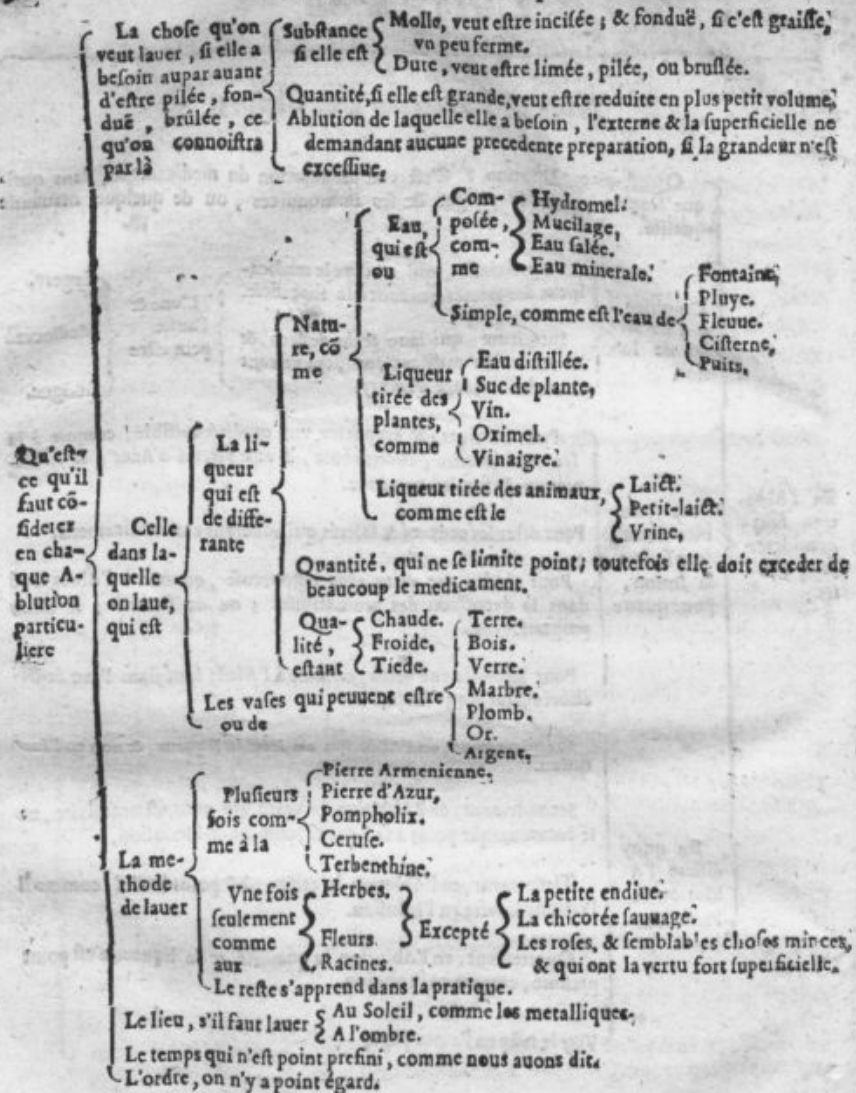 La chose qu'on
veut lauer, si elle a
besoin auparauant
d'estre pilée, fon-
duë, brûlée, ce
qu'on connoistra
par là
Substance
si elle est
Molle, veut estre incisée; & fonduë, si c'est graisse,
vn peu ferme.
Dure, veut estre limée, pilée, ou bruslée.
Quantité, si elle est grande, veut estre reduite en plus petit volume,
Ablution de laquelle elle a besoin, l'externe & la superficielle ne
demandant aucune precedente preparation, si la grandeur n'est
excessiue,
Qu'est-
ce qu'il
faut cõ-
siderer
en cha-
que A-
blution
particu-
liere
Celle
dans la-
quelle
on laue,
qui est
La li-
queur
qui est
de diffe-
rante
Natu-
re, cõ
me
Eau,
qui est
ou
Com-
posée,
com-
me
Hydromel.
Mucilage,
Eau salée.
Eau minerale.
Simple, comme est l'eau de
Fontaine,
Pluye.
Fleuue.
Cisterne,
Puits,
Liqueur
tirée des
plantes,
comme
Eau distillée.
Suc de plante,
Vin.
Oximel.
Vinaigre.
Liqueur tirée des animaux,
comme est le
Laict.
Petit-laict.
Vrine,
Quantité, qui ne se limite point; toutefois elle doit exceder de
beaucoup le medicament.
Qua-
lité,
estant
Chaude.
Froide,
Tiede.
Les vases qui peuuent estre
ou de
Terre.
Bois.
Verre.
Marbre.
Plomb.
Or.
Argent,
La me-
thode
de lauer
Plusieurs
fois com-
me à la
Pierre Armenienne.
Pierre d'Azur,
Pompholix.
Ceruse.
Terbenthine.
Vne fois
seulement
comme
aux
Herbes.
Fleurs
Racines.
Excepté
La petite endiue.
La chicorée sauuage.
Les roses, & semblables choses minces,
& qui ont la vertu fort superficielle.
Le reste s'apprend dans la pratique.
Le lieu, s'il faut lauer
Au Soleil, comme les metalliques.
A l'ombre.
Le temps qui n'est point prefini, comme nous auons dit.
L'ordre, on n'y a point égard.